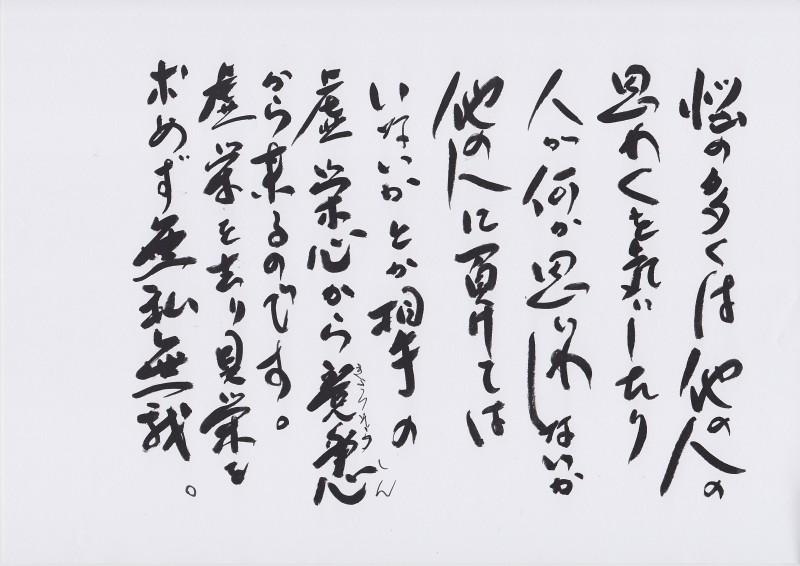 悩の多くは他の人の
思わくを気にしたり
人が何か思いわしないか
他の人に負けては
いないかとか相手の
虚栄心から心
しん
から来るのです。
虚栄を去り見栄を
求めず無私無我。